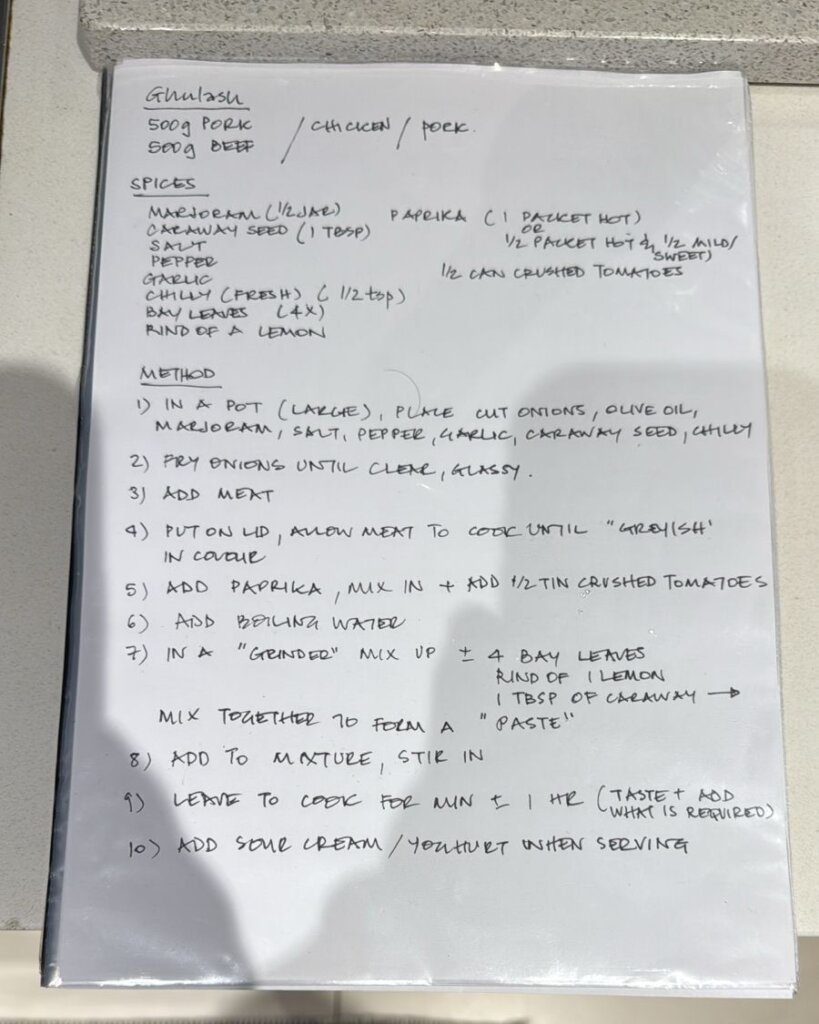 Ghulash
500g PORK / CHICKEN / PORK.
500g BEEF
SPICES
MARJORAM (1/2 JAR) PAPRIKA (1 PACKET HOT)
OR
CARAWAY SEED (1 TBSP) 1/2 PACKET HOT & 1/2 MILD/
SWEET)
SALT
PEPPER
GARLIC 1/2 CAN CRUSHED TOMATOES
CHILLY (FRESH) (1/2 tsp)
BAY LEAVES (4X)
RIND OF A LEMON
METHOD
1) IN A POT (LARGE), PLACE CUT ONIONS, OLIVE OIL,
MARJORAM, SALT, PEPPER, GARLIC, CARAWAY SEED, CHILLY
2) FRY ONIONS UNTIL CLEAR, GLASSY.
3) ADD MEAT
4) PUT ON LID, ALLOW MEAT TO COOK UNTIL "GREYISH'
IN COLOUR
5) ADD PAPRIKA, MIX IN + ADD 1/2 TIN CRUSHED TOMATOES
6) ADD BOILING WATER
7) IN A "GRINDER" MIX UP ± 4 BAY LEAVES
RIND OF 1 LEMON
1 TBSP OF CARAWAY →
MIX TOGETHER TO FORM A "PASTE"
8) ADD TO MIXTURE, STIR IN
9) LEAVE TO COOK FOR MIN ± 1 HR (TASTE + ADD
WHAT IS REQUIRED)
10) ADD SOUR CREAM / YOGHURT WHEN SERVING